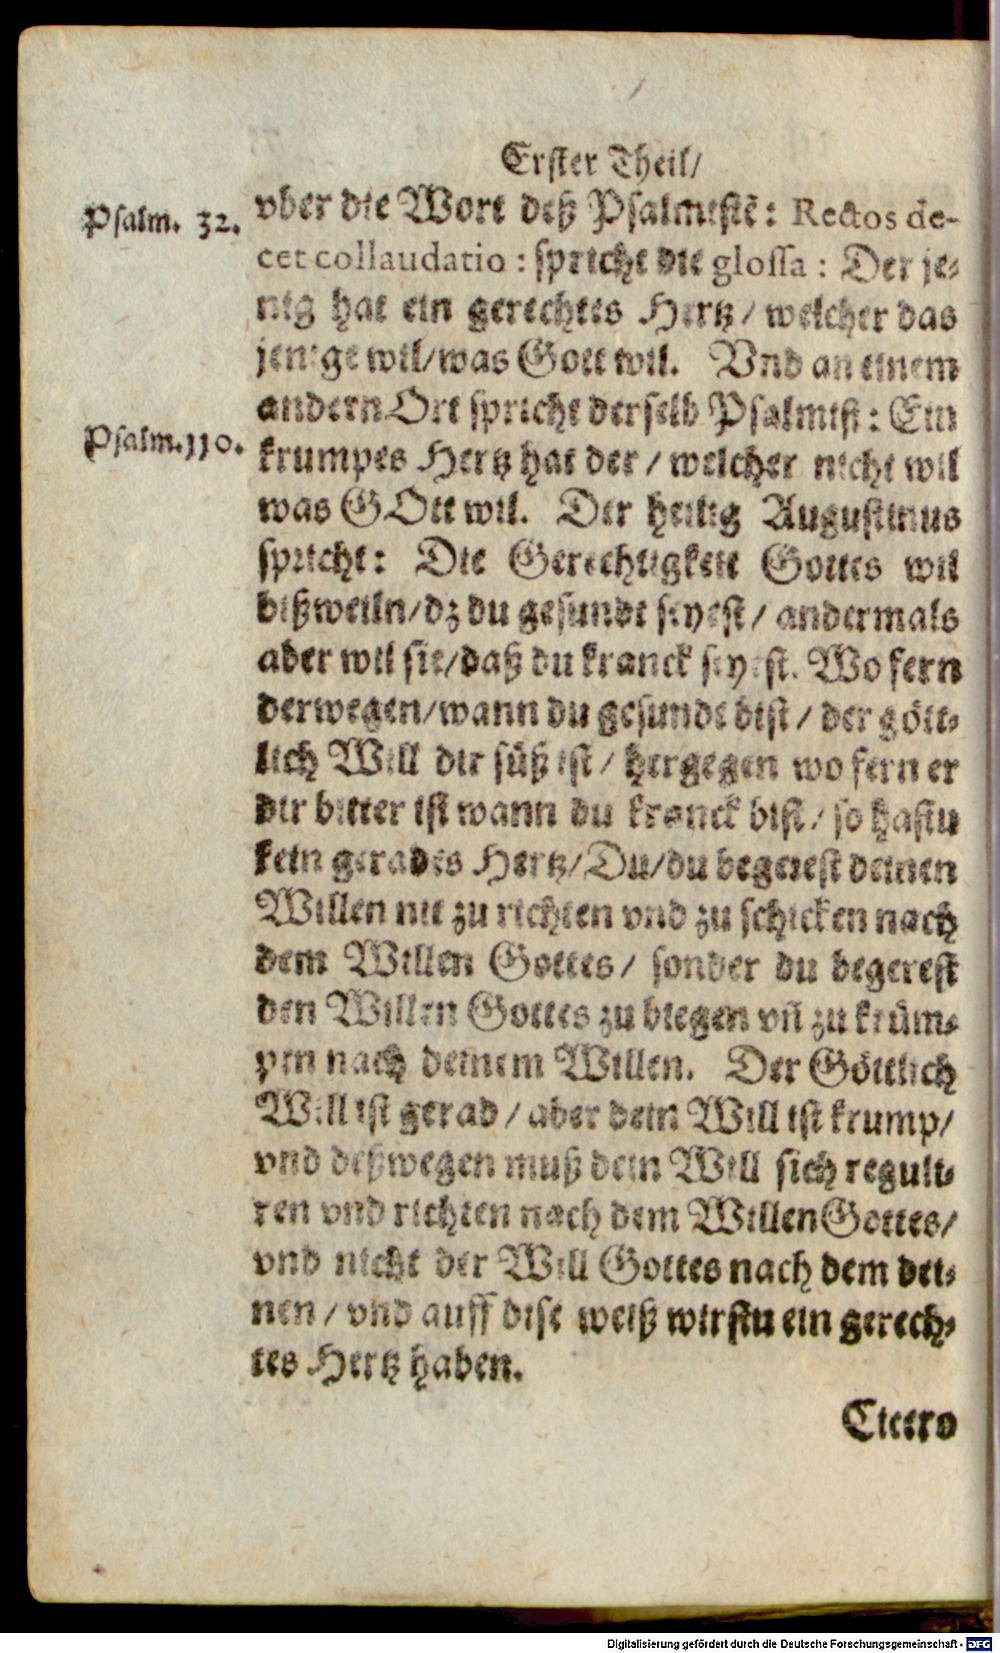 Erster Theil/
Psalm. 32.
vber die Wort deß Psalmistē: Rectos de-
cet collaudatio : spricht die glossa : Der je-
nig hat ein gerechtes Hertz/ welcher das
jenige wil/was Gott wil. Vnd an einem
andern Ort spricht derselb Psalmist: Ein
Psalm.110.
krumpes Hertz hat der/ welcher nicht wil
was GOtt wil. Der heilig Augustinus
spricht: Die Gerechtigkeit Gottes wil
bißweiln/dz du gesundt seyest/ andermals
aber wil sie/daß du kranck seyest. Wo fern
derwegen/wann du gesundt bist/ der gött-
lich Will dir süß ist/ hergegen wo fern er
dir bitter ist wann du kranck bist/ so hastu
kein gerades Hertz/Du/du begerest deinen
Willen nit zu richten vnd zu schicken nach
dem Willen Gottes/ sonder du begerest
den Willen Gottes zu biegen vñ zu krüm-
pen nach deinem Willen. Der Göttlich
Will ist gerad/ aber dein Will ist krump/
vnd deßwegen muß dein Will sich reguli-
ren vnd richten nach dem Willen Gottes/
vnd nicht der Will Gottes nach dem dei-
nen/ vnd auff dise weiß wirstu ein gerech-
tes Hertz haben.
Cicero
Digitalisierung gefördert durch die Deutsche Forschungsgemeinschaft - DFG